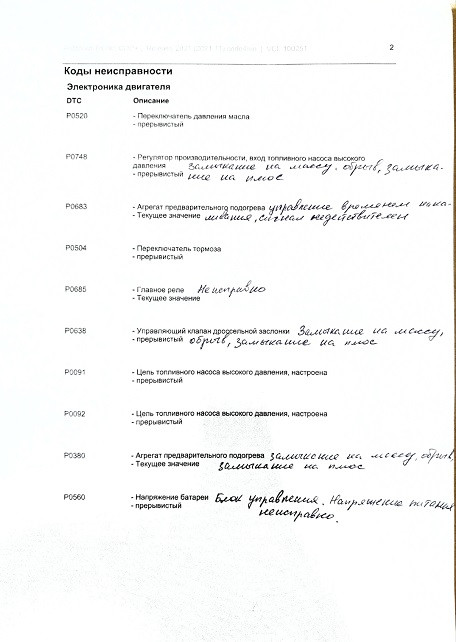 2
Коды неисправности
Электроника двигателя
DTC Описание
P0520 - Переключатель давления масла
- прерывистый
P0748 - Регулятор производительности, вход топливного насоса высокого
давления Замыкание на массу. обрыв, замыка-
- прерывистый ние на плюс
P0683 - Агрегат предварительного подогрева управление временем нака-
- Текущее значение ливания, сигнал недействителен
P0504 - Переключатель тормоза
- прерывистый
P0685 - Главное реле Неисправно
- Текущее значение
P0638 - Управляющий клапан дроссельной заслонки Замыкание на массу,
- прерывистый обрыв, замыкание на плюс
P0091 - Цепь топливного насоса высокого давления, настроена
- прерывистый
P0092 - Цепь топливного насоса высокого давления, настроена
- прерывистый
P0380 - Агрегат предварительного подогрева замыкание на массу, обрыв,
- Текущее значение замыкание на плюс
P0560 - Напряжение батареи Блок управления. Напряжение питания
- прерывистый неисправно.